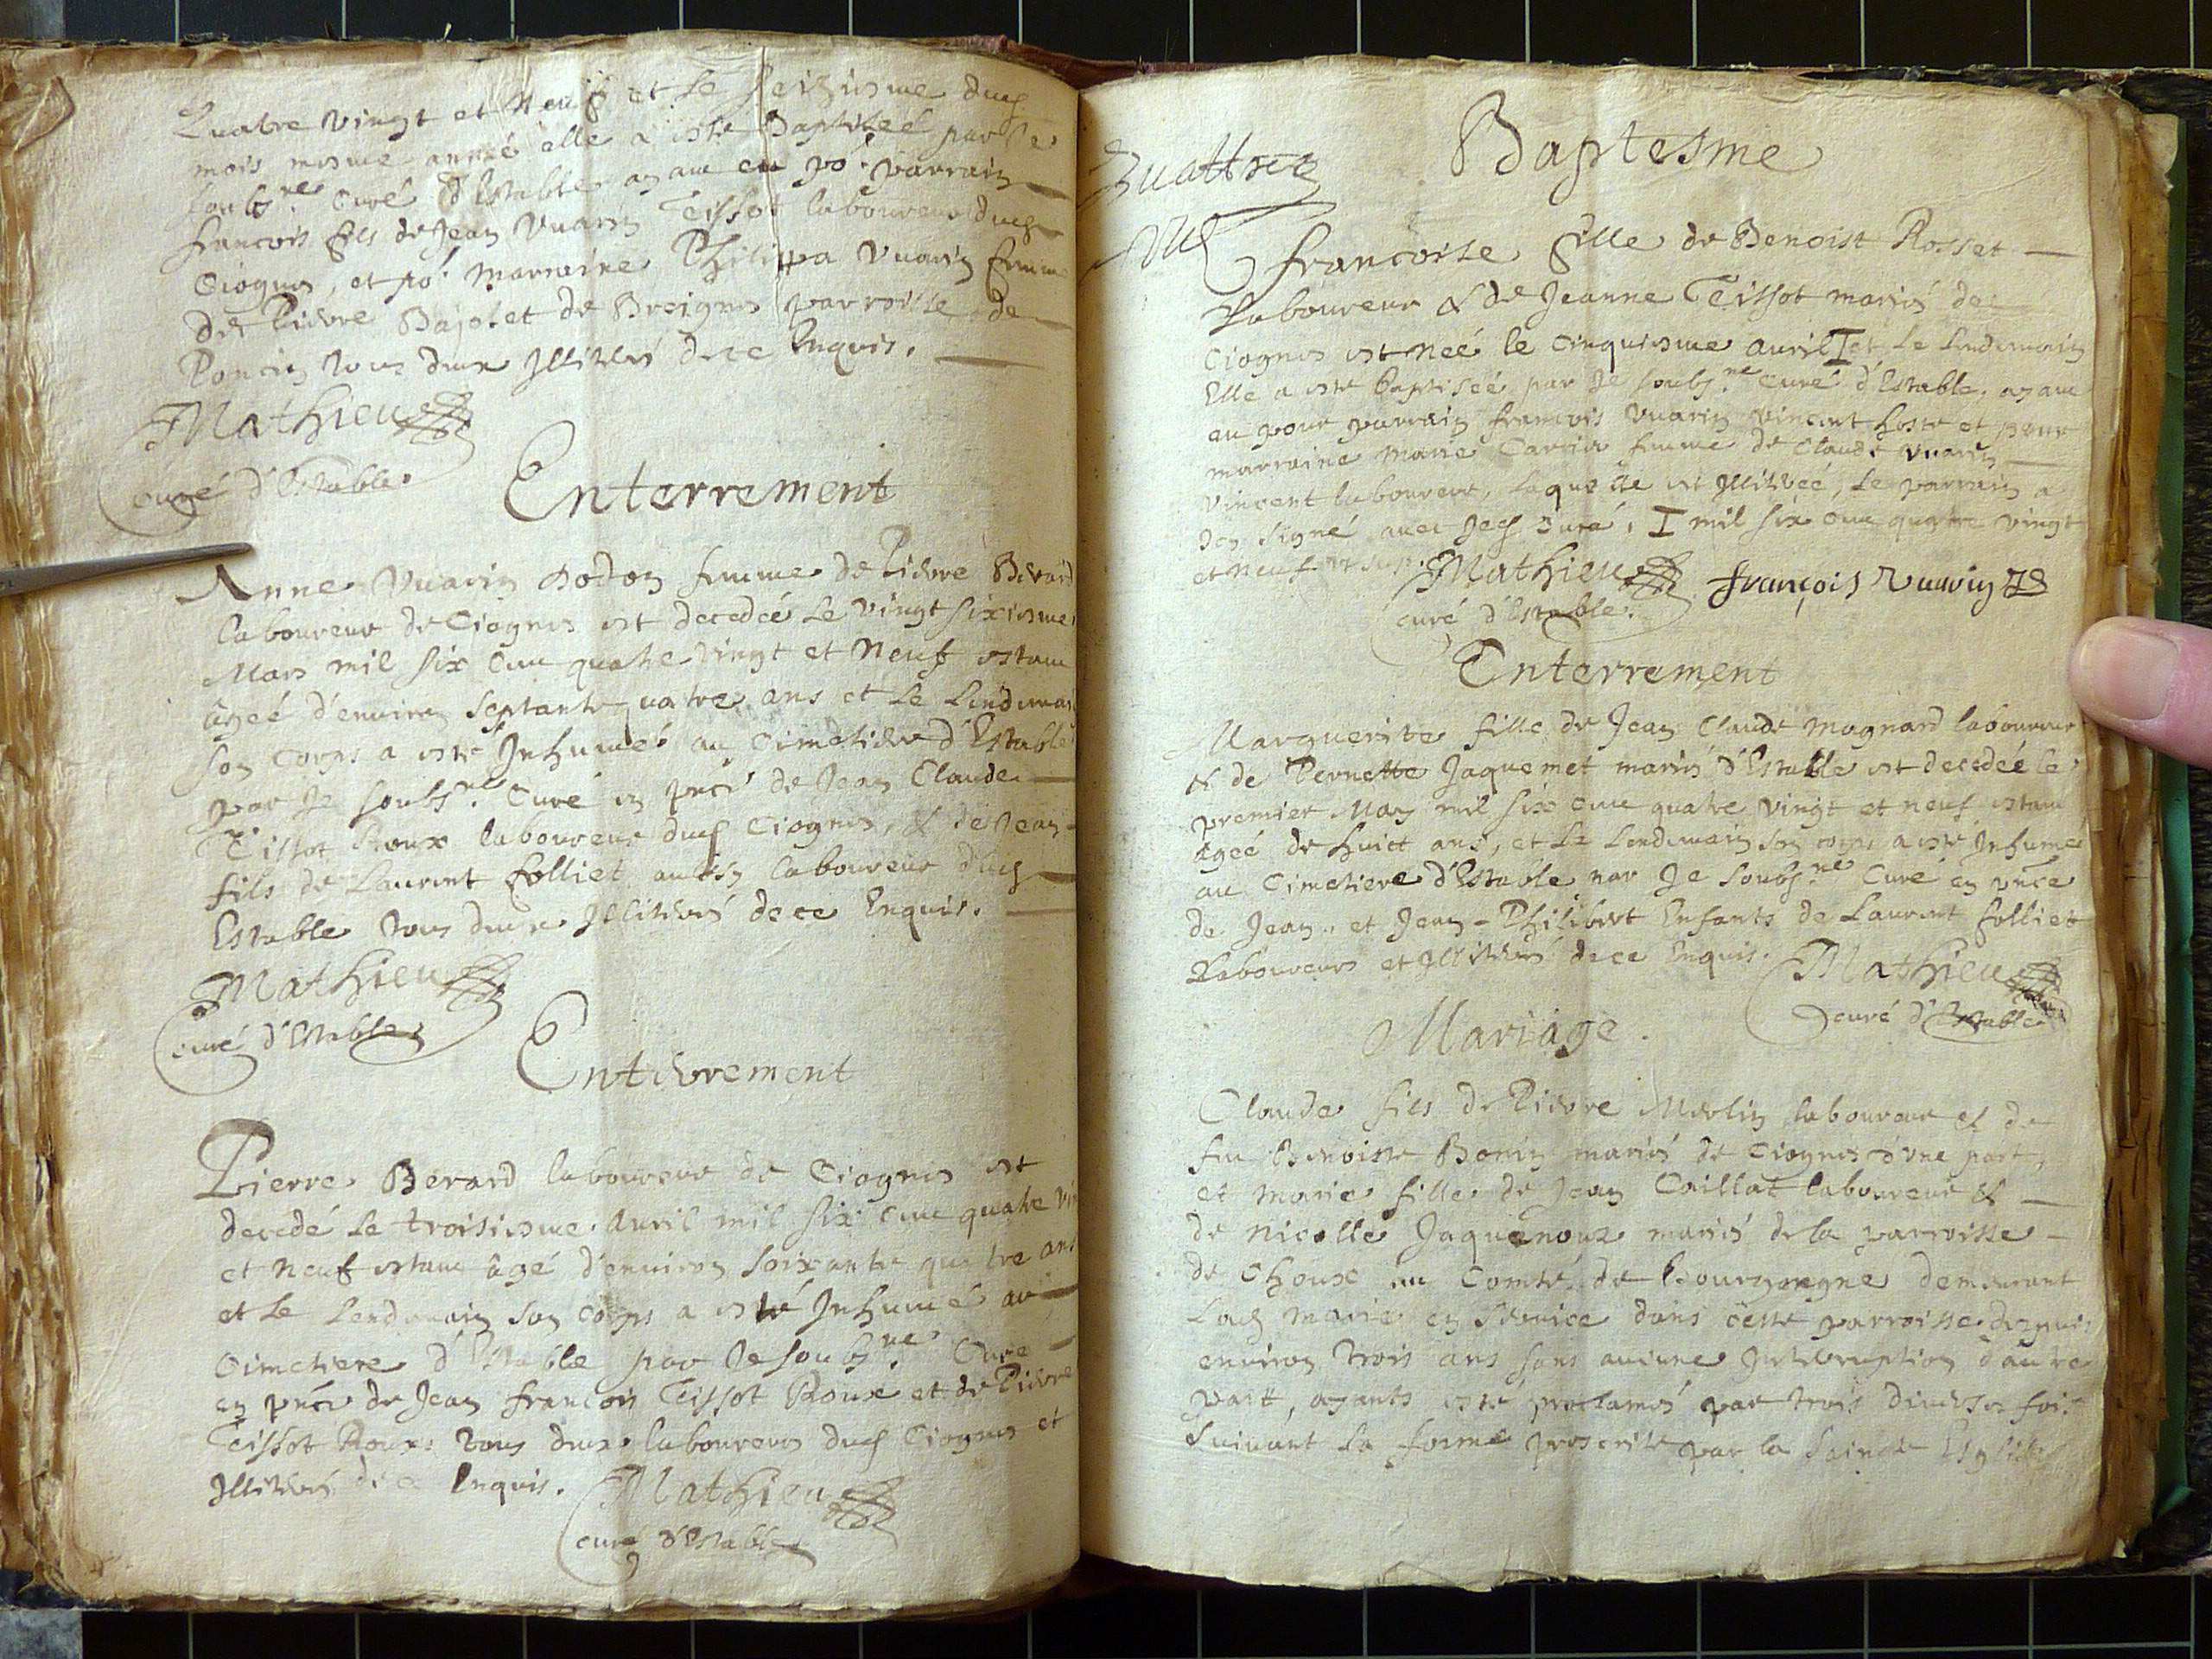 Quatre vingt et neuf et le seiziesme dud.
mois mesme année elle a esté Baptiseé par Je
soubs.né Curé d'Estable ayant eu po.r parrain
francois fils de Jean Vuarin Teissot laboureur dud.
Ciognes, et po.r marraine Philippa Vuarin femme
de Pierre Bajolet de Breignes parroisse de
Poncin tous deux Illitérés de ce Enquis.
Mathieu
curé d'Estable
Enterrement
Anne Vuarin Dodon femme de Pierre Berard
laboureur de Ciognes est decedeé le vingt sixiesme
Mars mil six cent quatre vingt et Neuf estant
âgeé d'environ septante quatre ans et le lendemain
son corps a esté Inhumé au Cimetiere d'Estable
par Je soubs.né Curé en p̃nce de Jean Claude
Teissot Roux laboureur dud Ciognes, & de Jean
fils de Laurent folliet aussy laboureur dud
Estable tous deux Illitérés de ce Enquis.
Mathieu
curé d'Estable
Enterrement
Pierre Berard laboureur de Ciognes est
decedé le troisiesme Auril mil six cent quatre vin
et neuf estant âgé d'environ soixante quatre ans
et le lendemain son corps a esté Inhumé au
Cimetiere d'Estable par Je soubs.né Curé
en p̃nce de Jean francois Teissot Roux et de Pierre
Teissot Roux tous deux laboureurs dud Ciognes et
Illitérés de ce Enquis.
Mathieu
curé d'Estable
Baptesme
Quattre
francoise fille de Benoist Rosset
Laboureur & de Jeanne Teissot mariés de
Ciognes est neé le Cinquiesme auril I et le lendemain
Elle a esté baptiseé par Je soubs.né Curé d'Estable, ayant
eu pour parrain francois Vuarin Vincent hoste et pour
marraine marie Carrier femme de Claude Vuarin
Vincent laboureur, laquelle est Illitereé, le parrain a
bien signé avec Jed Curé, I mil six cent quatre vingt
et neuf ut sup.
Mathieu
curé d'Estable.
françois Vuarin
Enterrement
Marguerite fille de Jean Claude Magnard laboureur
& de Pernette Jaquemet mariés d'Estable est decedeé le
premier May mil six cent quatre vingt et neuf estant
âgeé de huict ans, et le lendemain son corps a esté Inhumé
au Cimetiere d'Estable par Je soubs.né Curé en p̃nce
de Jean, et Jean-Philibert Enfants de Laurent folliet
Laboureurs et Illitérés de ce Enquis.
Mathieu
curé d'Estable
Mariage.
Claude fils de Pierre Merlin laboureur et de
feu Benoiste Bonin mariés de Ciognes d'vne part,
et Marie fille de Jean Caillat laboureur &
de Nicolle Jaquenoux mariés de la parroisse
de Choux au Comté de Bourgongne demeurant
Lad Marie en service dans cette parroisse depuis
environ trois ans sans aucune Interruption d'autre
part, ayants esté proclamés par trois diverses fois
suivant la forme prescrite par la Saincte Esglise